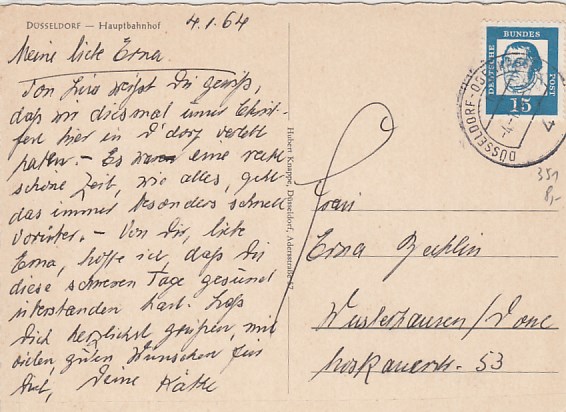 DÜSSELDORF — Hauptbahnhof
4.1.64
Meine liebe Erna
Von Lisa weißt Du gewiß,
daß wir diesmal unser Christ-
fest hier in D'dorf verlebt
haben. – Es war eine recht
schöne Zeit, wie alles, geht
das immer besonders schnell
vorüber. – Von Dir, liebe
Erna, hoffe ich, daß Du
diese schweren Tage gesund
überstanden hast. Laß
Dich herzlichst grüßen, mit
vielen, guten Wünschen für
Dich, Deine Käthe
Hubert Knuppe, Düsseldorf, Adersstraße 57
DEUTSCHE BUNDES POST
15
DÜSSELDORF
351
8,-
Frau
Erna Bechlin
Wusterhausen/Dosse
53